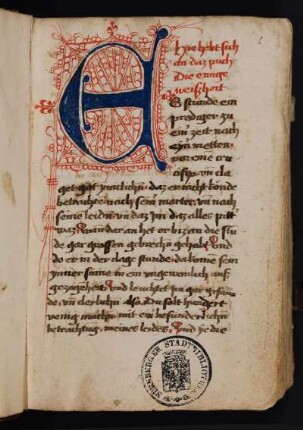 Hye hebt sich
an daz puch
Die ewige
weisheit
ES stunde ein
prediger zu
einer zeit nach
einer metten
vor eine cru
cifix vn cla
get got daz er nicht kónde
betrachte nach sein marter vn nach
seine leiden vn daz daz alles pitt
waz an dar an het er biz an die stu
de gar grossen gebrech gehabt vnd
do er in der clag stunde da kome sein
synne in ein vngewenlich auf
gezogeheit vnd leuchtet also Du solt hundert
venig mache mit ein besunderlich
betrachtug meines leides vnd ye die
NÜRNBERGER STADTBIBLIOTHEK
2